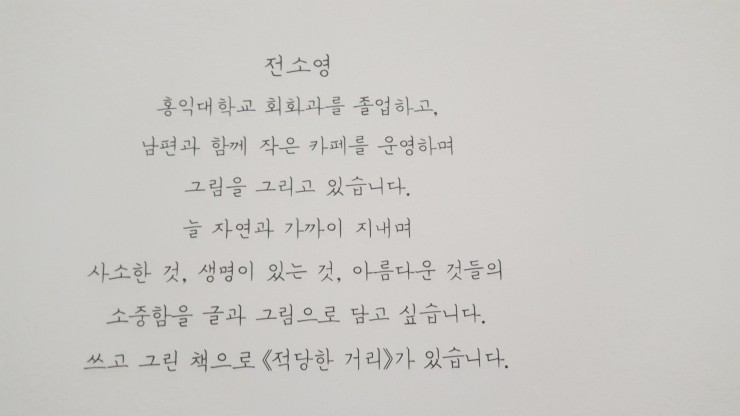 전소영
홍익대학교 회화과를 졸업하고,
남편과 함께 작은 카페를 운영하며
그림을 그리고 있습니다.
늘 자연과 가까이 지내며
사소한 것, 생명이 있는 것, 아름다운 것들의
소중함을 글과 그림으로 담고 싶습니다.
쓰고 그린 책으로 《적당한 거리》가 있습니다.